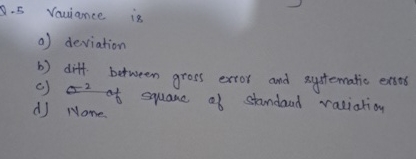 Q-5 Variance is
a) deviation
b) diff. between gross error and systematic error
c) σ² of square of standard variation
d) None